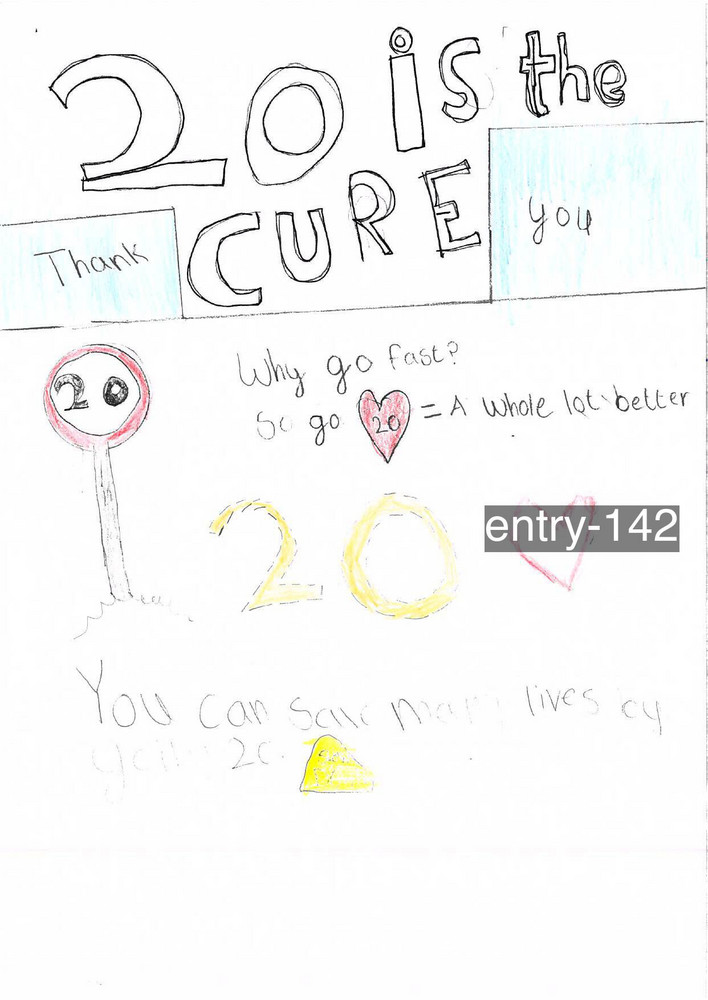 20 is the
CURE
Thank
you
20
Why go fast?
So go 20 = A whole lot better
20
entry-142
You can save many lives by
20